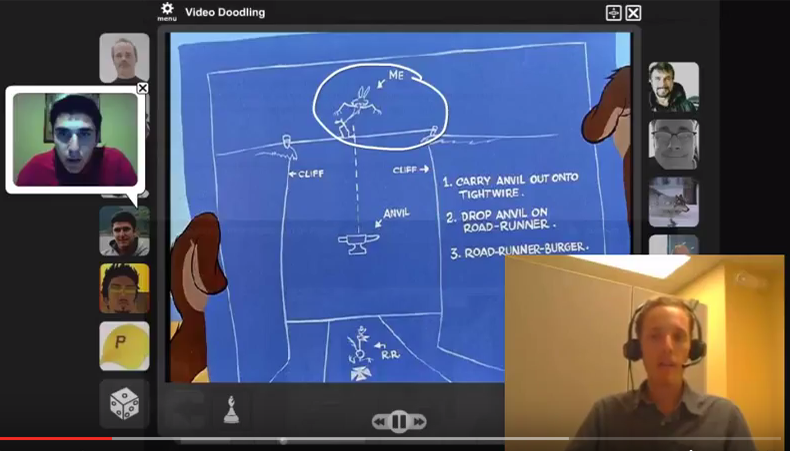 menu
Video Doodling
ME
←CLIFF
CLIFF→
1. CARRY ANVIL OUT ONTO
TIGHTWIRE.
ANVIL
2. DROP ANVIL ON
ROAD-RUNNER.
3. ROAD-RUNNER-BURGER.
R.R
P